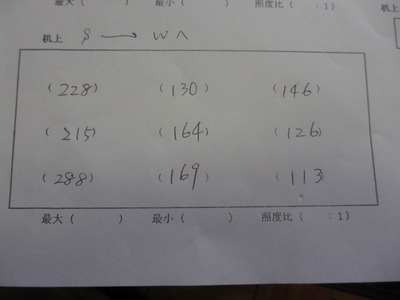 最大( ) 最小( ) 照度比( :1)
机上 S → W 机上
(228) (130) (146)
(215) (164) (126)
(288) (169) (113)
最大( ) 最小( ) 照度比( :1)